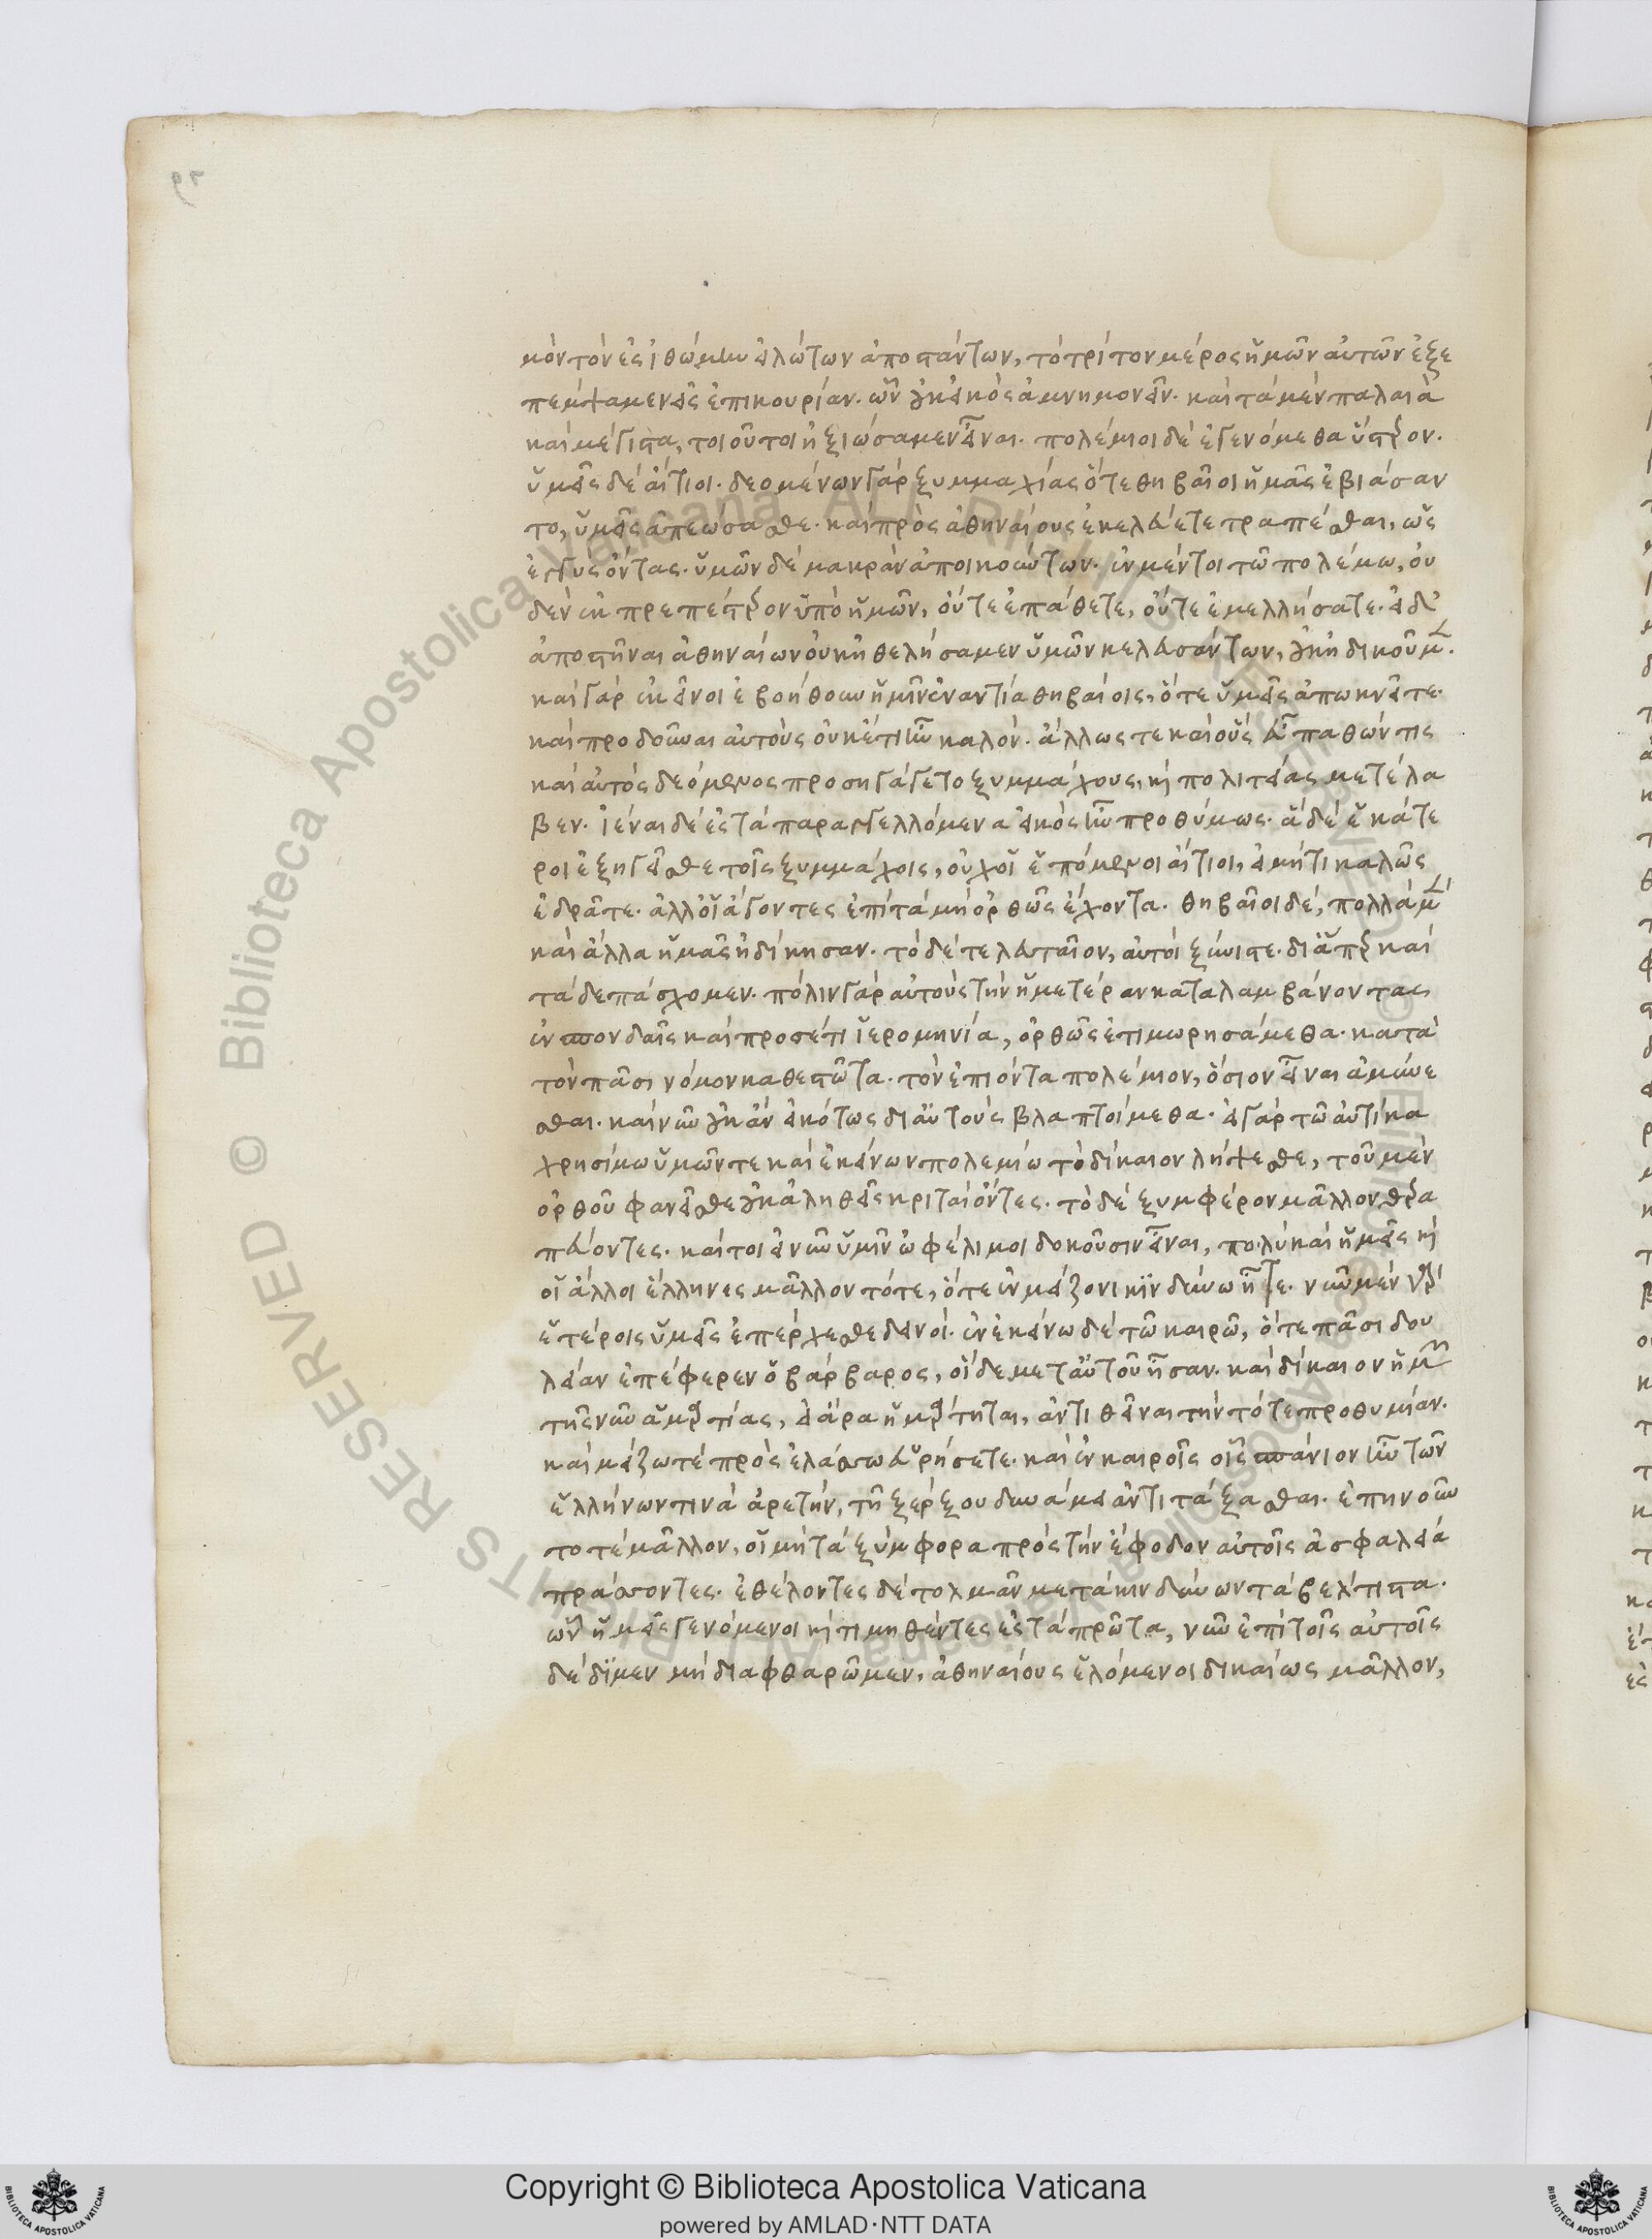 μὸν τὸν ἐς ἰθώμην εἱλώτων ἀποστάντων, τὸ τρίτον μέρος ἡμῶν αὐτῶν ἐξε
πέμψαμεν ἐς ἐπικουρίαν. ὧν οὐκ εἰκὸς ἀμνημονεῖν. καὶ τὰ μὲν παλαιὰ
καὶ μέγιστα, τοιοῦτοι ἠξιώσαμεν εἶναι. πολέμιοι δὲ ἐγενόμεθα ὕστερον.
ὑμεῖς δὲ αἴτιοι. δεομένων γὰρ ξυμμαχίας ὅτε θηβαῖοι ἡμᾶς ἐβιάσαν
το, ὑμεῖς ἀπεώσασθε. καὶ πρὸς ἀθηναίους ἐκελεύετε τραπέσθαι, ὡς
ἐγγὺς ὄντας. ὑμῶν δὲ μακρὰν ἀποικούντων. ἐν μέντοι τῶ πολέμω, οὐ
δὲν ἐκπρεπέστερον ὑπὸ ἡμῶν, οὔτε ἐπάθετε, οὔτε ἐμελλήσατε. εἰ δ'
ἀποστῆναι ἀθηναίων οὐκ ἠθελήσαμεν ὑμῶν κελευσάντων, οὐκ ἠδικοῦμεν.
καὶ γὰρ ἐκεῖνοι ἐβοήθουν ἡμῖν ἐναντία θηβαίοις, ὅτε ὑμεῖς ἀπωκνεῖτε.
καὶ προδοῦναι αὐτοὺς οὐκέτι ἦν καλόν. ἄλλως τε καὶ οὓς εὖ παθών τις
καὶ αὐτὸς δεόμενος προσηγάγετο ξυμμάχους, καὶ πολιτείας μετέλα
βεν. ἰέναι δὲ ἐς τὰ παραγγελλόμενα εἰκὸς ἦν προθύμως. ἃ δὲ ἑκάτε
ροι ἐξηγεῖσθε τοῖς ξυμμάχοις, οὐχ οἱ ἑπόμενοι αἴτιοι, εἰ μή τι καλῶς
ἐδρᾶτε. ἀλλ' οἱ ἄγοντες ἐπὶ τὰ μὴ ὀρθῶς ἔχοντα. θηβαῖοι δὲ, πολλὰ μὲν
καὶ ἄλλα ἡμᾶς ἠδίκησαν. τὸ δὲ τελευταῖον, αὐτοὶ ξύνιστε. δι' ἅπερ καὶ
τάδε πάσχομεν. πόλιν γὰρ αὐτοὺς τὴν ἡμετέραν καταλαμβάνοντας
ἐν σπονδαῖς καὶ προσέτι ἱερομηνία, ὀρθῶς ἐτιμωρησάμεθα. κατὰ
τὸν πᾶσι νόμον καθεστῶτα. τὸν ἐπιόντα πολέμιον, ὅσιον εἶναι ἀμύνε
σθαι. καὶ νῦν οὐκ ἂν εἰκότως δι' αὐτοὺς βλαπτοίμεθα. εἰ γὰρ τῶ αὐτίκα
χρησίμω ὑμῶν τε καὶ ἐκείνων πολεμίω τὸ δίκαιον λήψεσθε, τοῦ μὲν
ὀρθοῦ φανεῖσθε οὐκ ἀληθεῖς κριταὶ ὄντες. τὸ δὲ ξυμφέρον μᾶλλον θερα
πεύοντες. καίτοι εἰ νῦν ὑμῖν ὠφέλιμοι δοκοῦσιν εἶναι, πολὺ καὶ ἡμεῖς καὶ
οἱ ἄλλοι ἕλληνες μᾶλλον τότε, ὅτε ἐν μείζονι κινδύνω ἦτε. νῦν μὲν γὰρ
ἑτέροις ὑμεῖς ἐπέρχεσθε δεινοί. ἐν ἐκείνω δὲ τῶ καιρῶ, ὅτε πᾶσι δου
λείαν ἐπέφερεν ὁ βάρβαρος, οἵδε μετ' αὐτοῦ ἦσαν. καὶ δίκαιον ἡμῶν
τῆς νῦν ἁμαρτίας, εἰ ἄρα ἡμάρτηται, ἀντιθεῖναι τὴν τότε προθυμίαν.
καὶ μείζω τὲ πρὸς ἐλάσσω εὑρήσετε. καὶ ἐν καιροῖς οἷς σπάνιον ἦν τῶν
ἑλλήνων τινὰ ἀρετὴν, τῆ ξέρξου δυνάμει ἀντιτάξασθαι. ἐπηνοῦν
το τὲ μᾶλλον, οἱ μὴ τὰ ξύμφορα πρὸς τὴν ἔφοδον αὐτοῖς ἀσφαλεία
πράσσοντες. ἐθέλοντες δὲ τολμᾶν μετὰ κινδύνων τὰ βέλτιστα.
ὧν ἡμεῖς γενόμενοι καὶ τιμηθέντες ἐς τὰ πρῶτα, νῦν ἐπὶ τοῖς αὐτοῖς
δέδιμεν μὴ διαφθαρῶμεν, ἀθηναίους ἑλόμενοι δικαίως μᾶλλον,
Copyright © Biblioteca Apostolica Vaticana
powered by AMLAD·NTT DATA